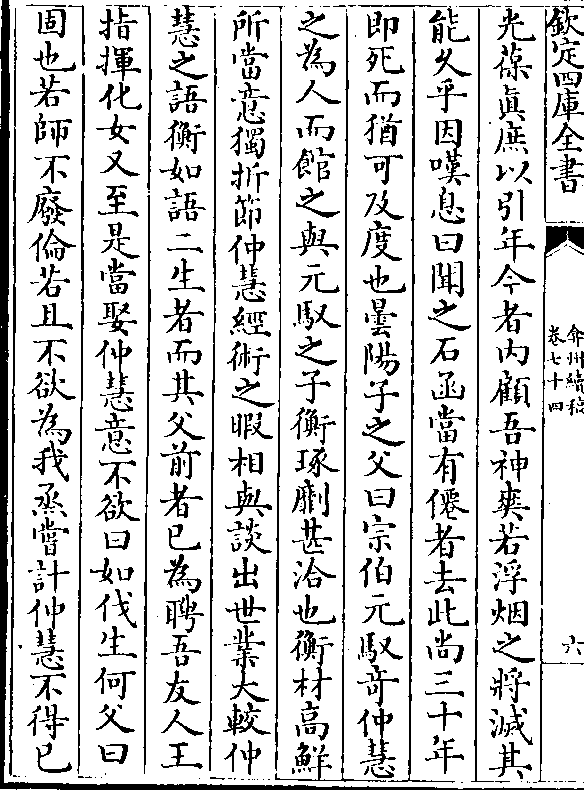 欽定四庫全書
弇州續稿
卷七十四
六
光葆真庶以引年今者內顧吾神爽若浮烟之將滅其
能乆乎因嘆息曰聞之石函當有僊者去此尚三十年
即死而猶可及度也曇陽子之父曰宗伯元馭竒仲慧
之為人而館之與元馭之子衡琢劘甚洽也衡材髙鮮
所當意獨折節仲慧經術之暇相與談出世業大較仲
慧之語衡如語二生者而其父前者已為聘吾友人王
指揮化女又至是當娶仲慧意不欲曰如伐生何父曰
固也若師不廢倫若且不欲為我烝嘗計仲慧不得已